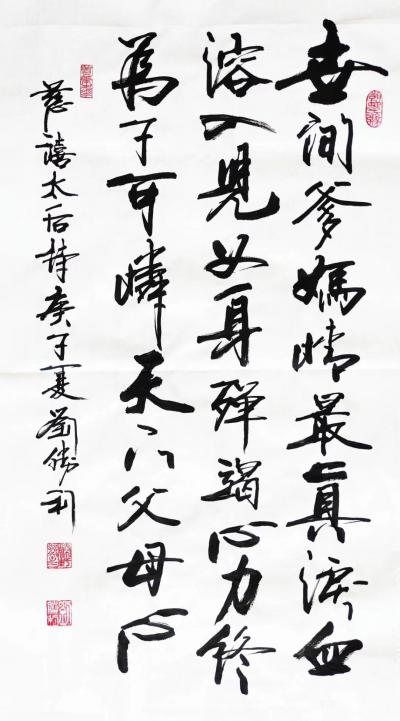 世间爹媽情最真淚血
溶入兒女身殫竭心力終
為子可憐天下父母心
慈禧太后詩庚子夏劉勝利